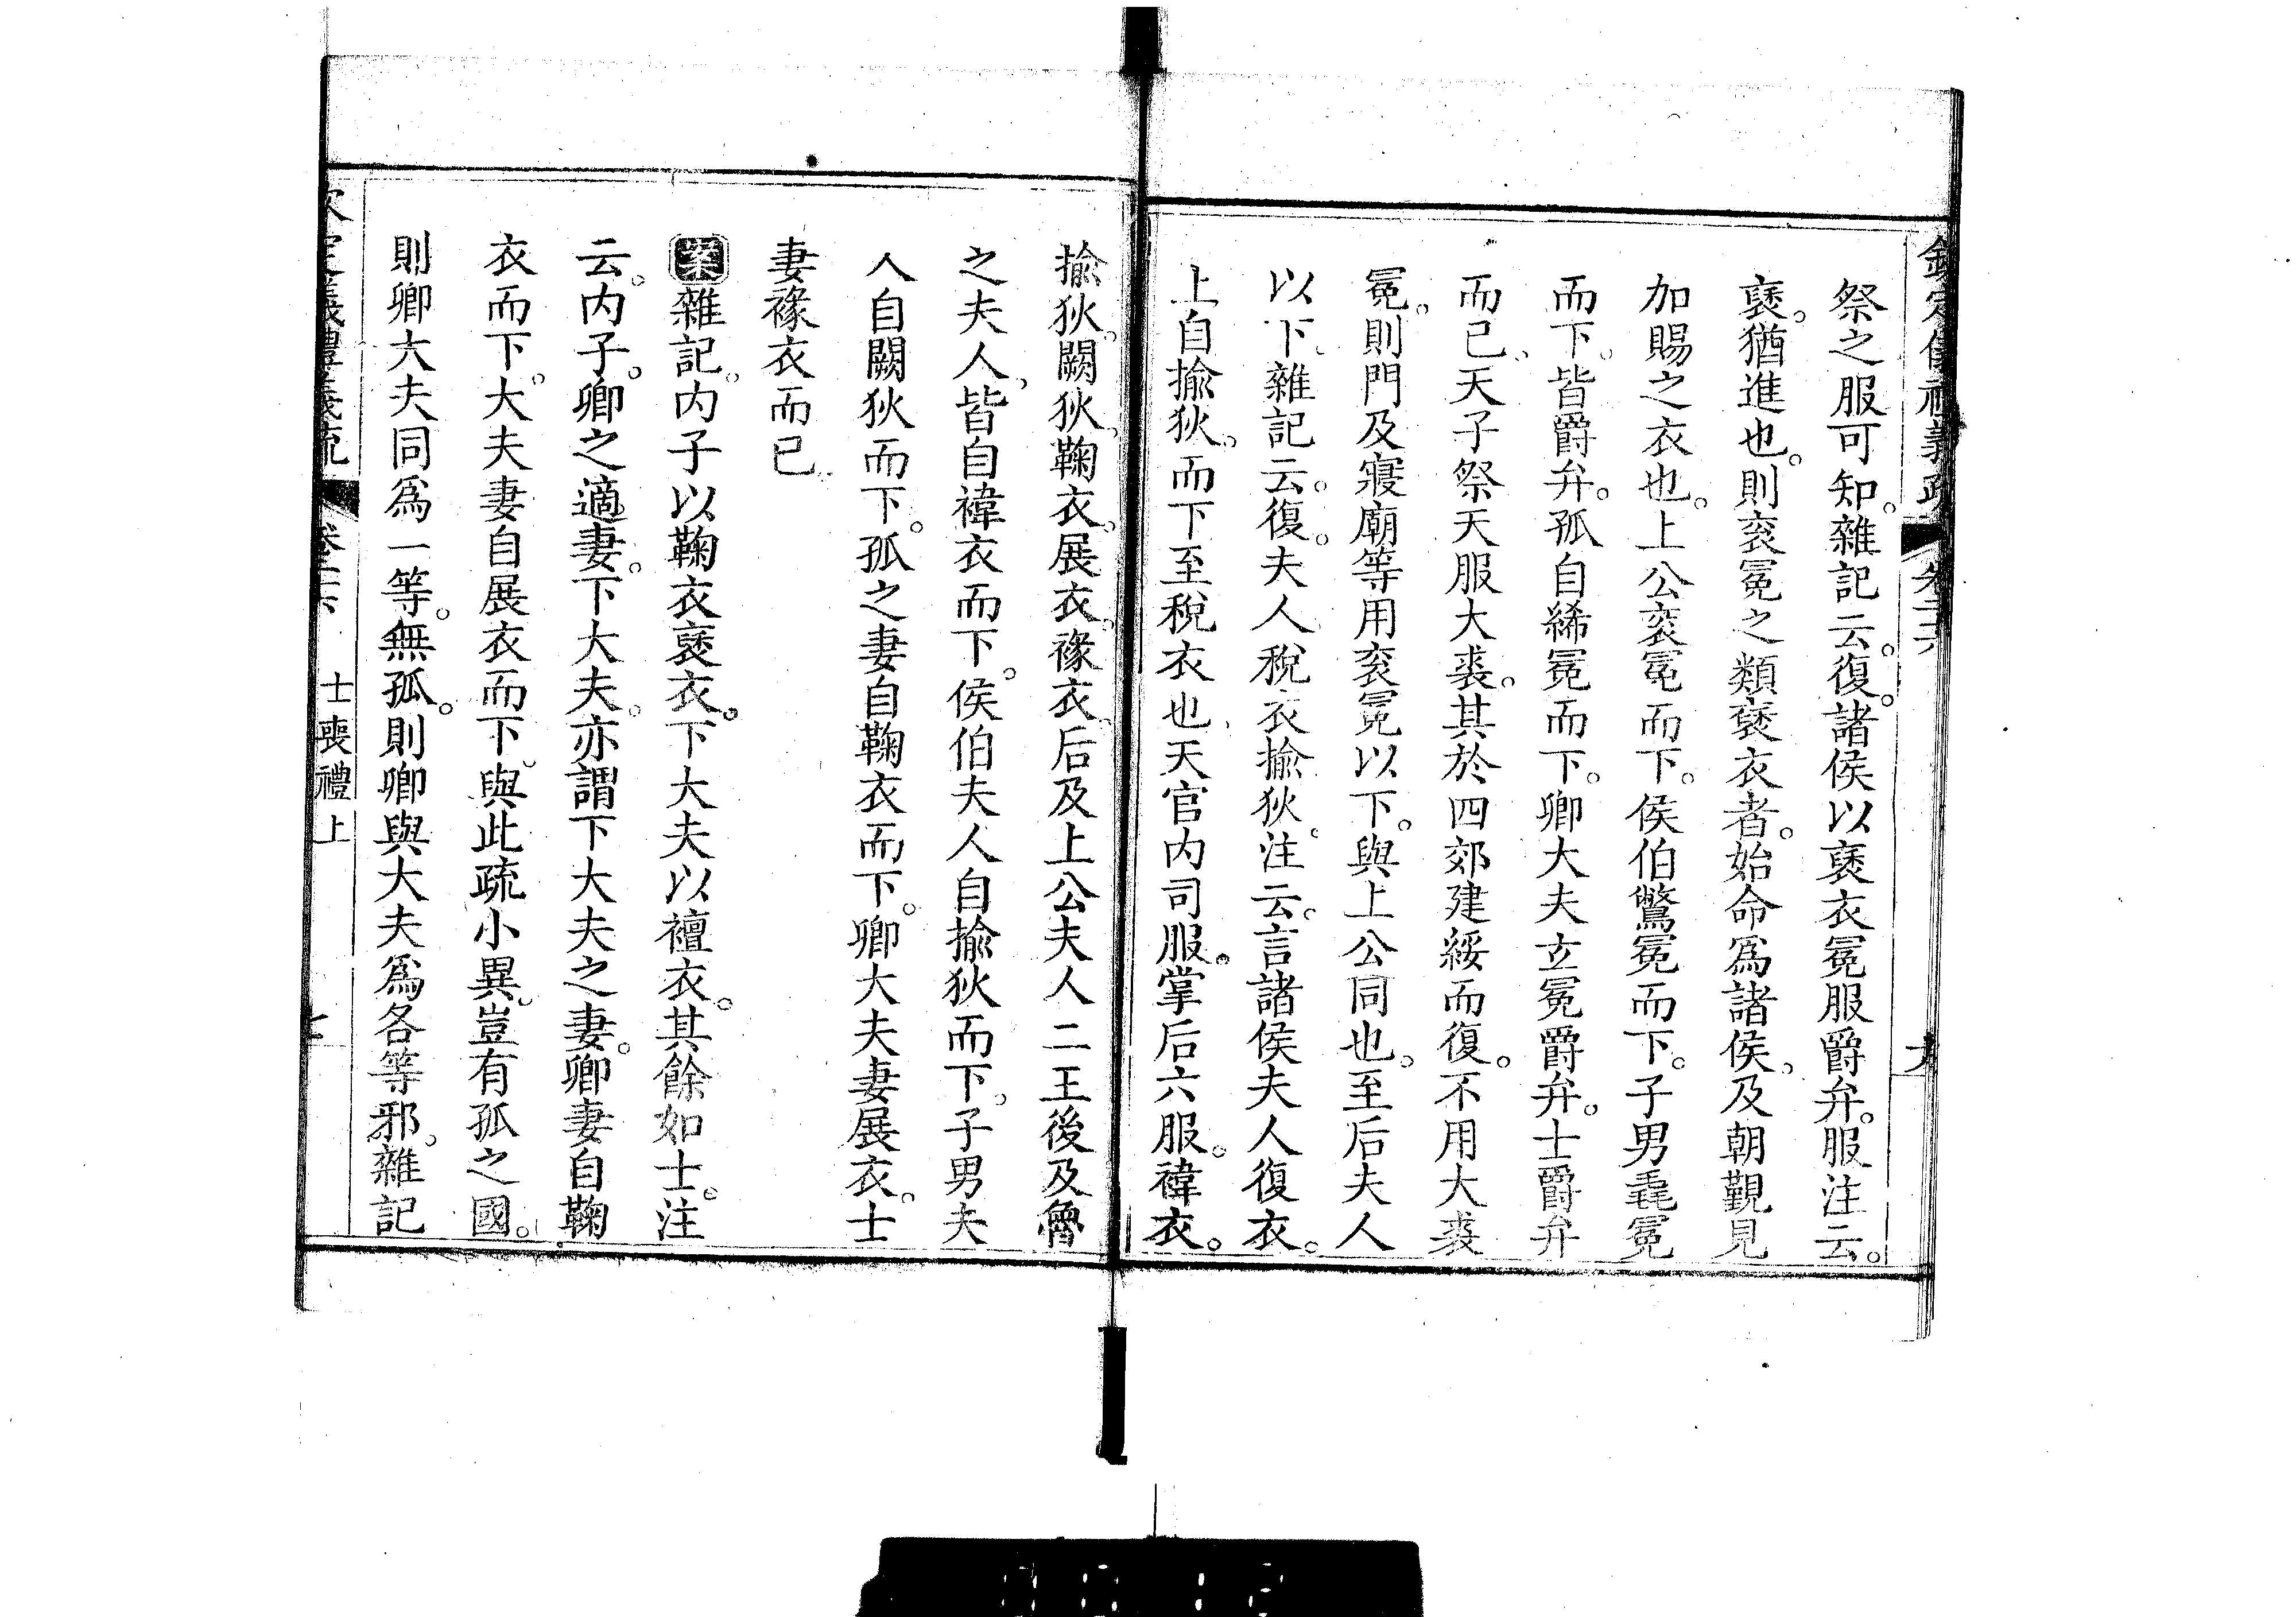 欽定儀禮義疏 卷二十六
祭之服可知。雜記云。復。諸侯以襃衣冕服爵弁。服注云。
襃。猶進也。則衮冕之類襃衣者。始命爲諸侯、及朝覲見
加賜之衣也。上公衮冕而下。侯伯鷩冕而下。子男毳冕
而下。皆爵弁。孤自絺冕而下。卿大夫玄冕爵弁。士爵弁
而已、天子祭天服大裘。其於四郊建綏而復。不用大裘
冕。則門及寢廟等用衮冕以下。與上公同也。至后夫人
以下、雜記云。復。夫人稅衣揄狄。注云。言諸侯夫人復衣。
上自揄狄。而下至稅衣也、天官內司服。掌后六服。褘衣。
揄狄、闕狄、鞠衣、展衣、褖衣、后及上公夫人二王後及魯
之夫人、皆自褘衣而下。侯伯夫人自揄狄而下、子男夫
人自闕狄而下。孤之妻自鞠衣而下。卿大夫妻展衣。士
妻褖衣而已
案雜記。内子以鞠衣襃衣。下大夫以襢衣。其餘如士。注
云。内子。卿之適妻。下大夫。亦謂下大夫之妻。卿妻自鞠
衣而下。大夫妻自展衣而下、與此疏小異。豈有孤之國。
則卿大夫同爲一等。無孤。則卿與大夫爲各等邪。雜記
士喪禮上